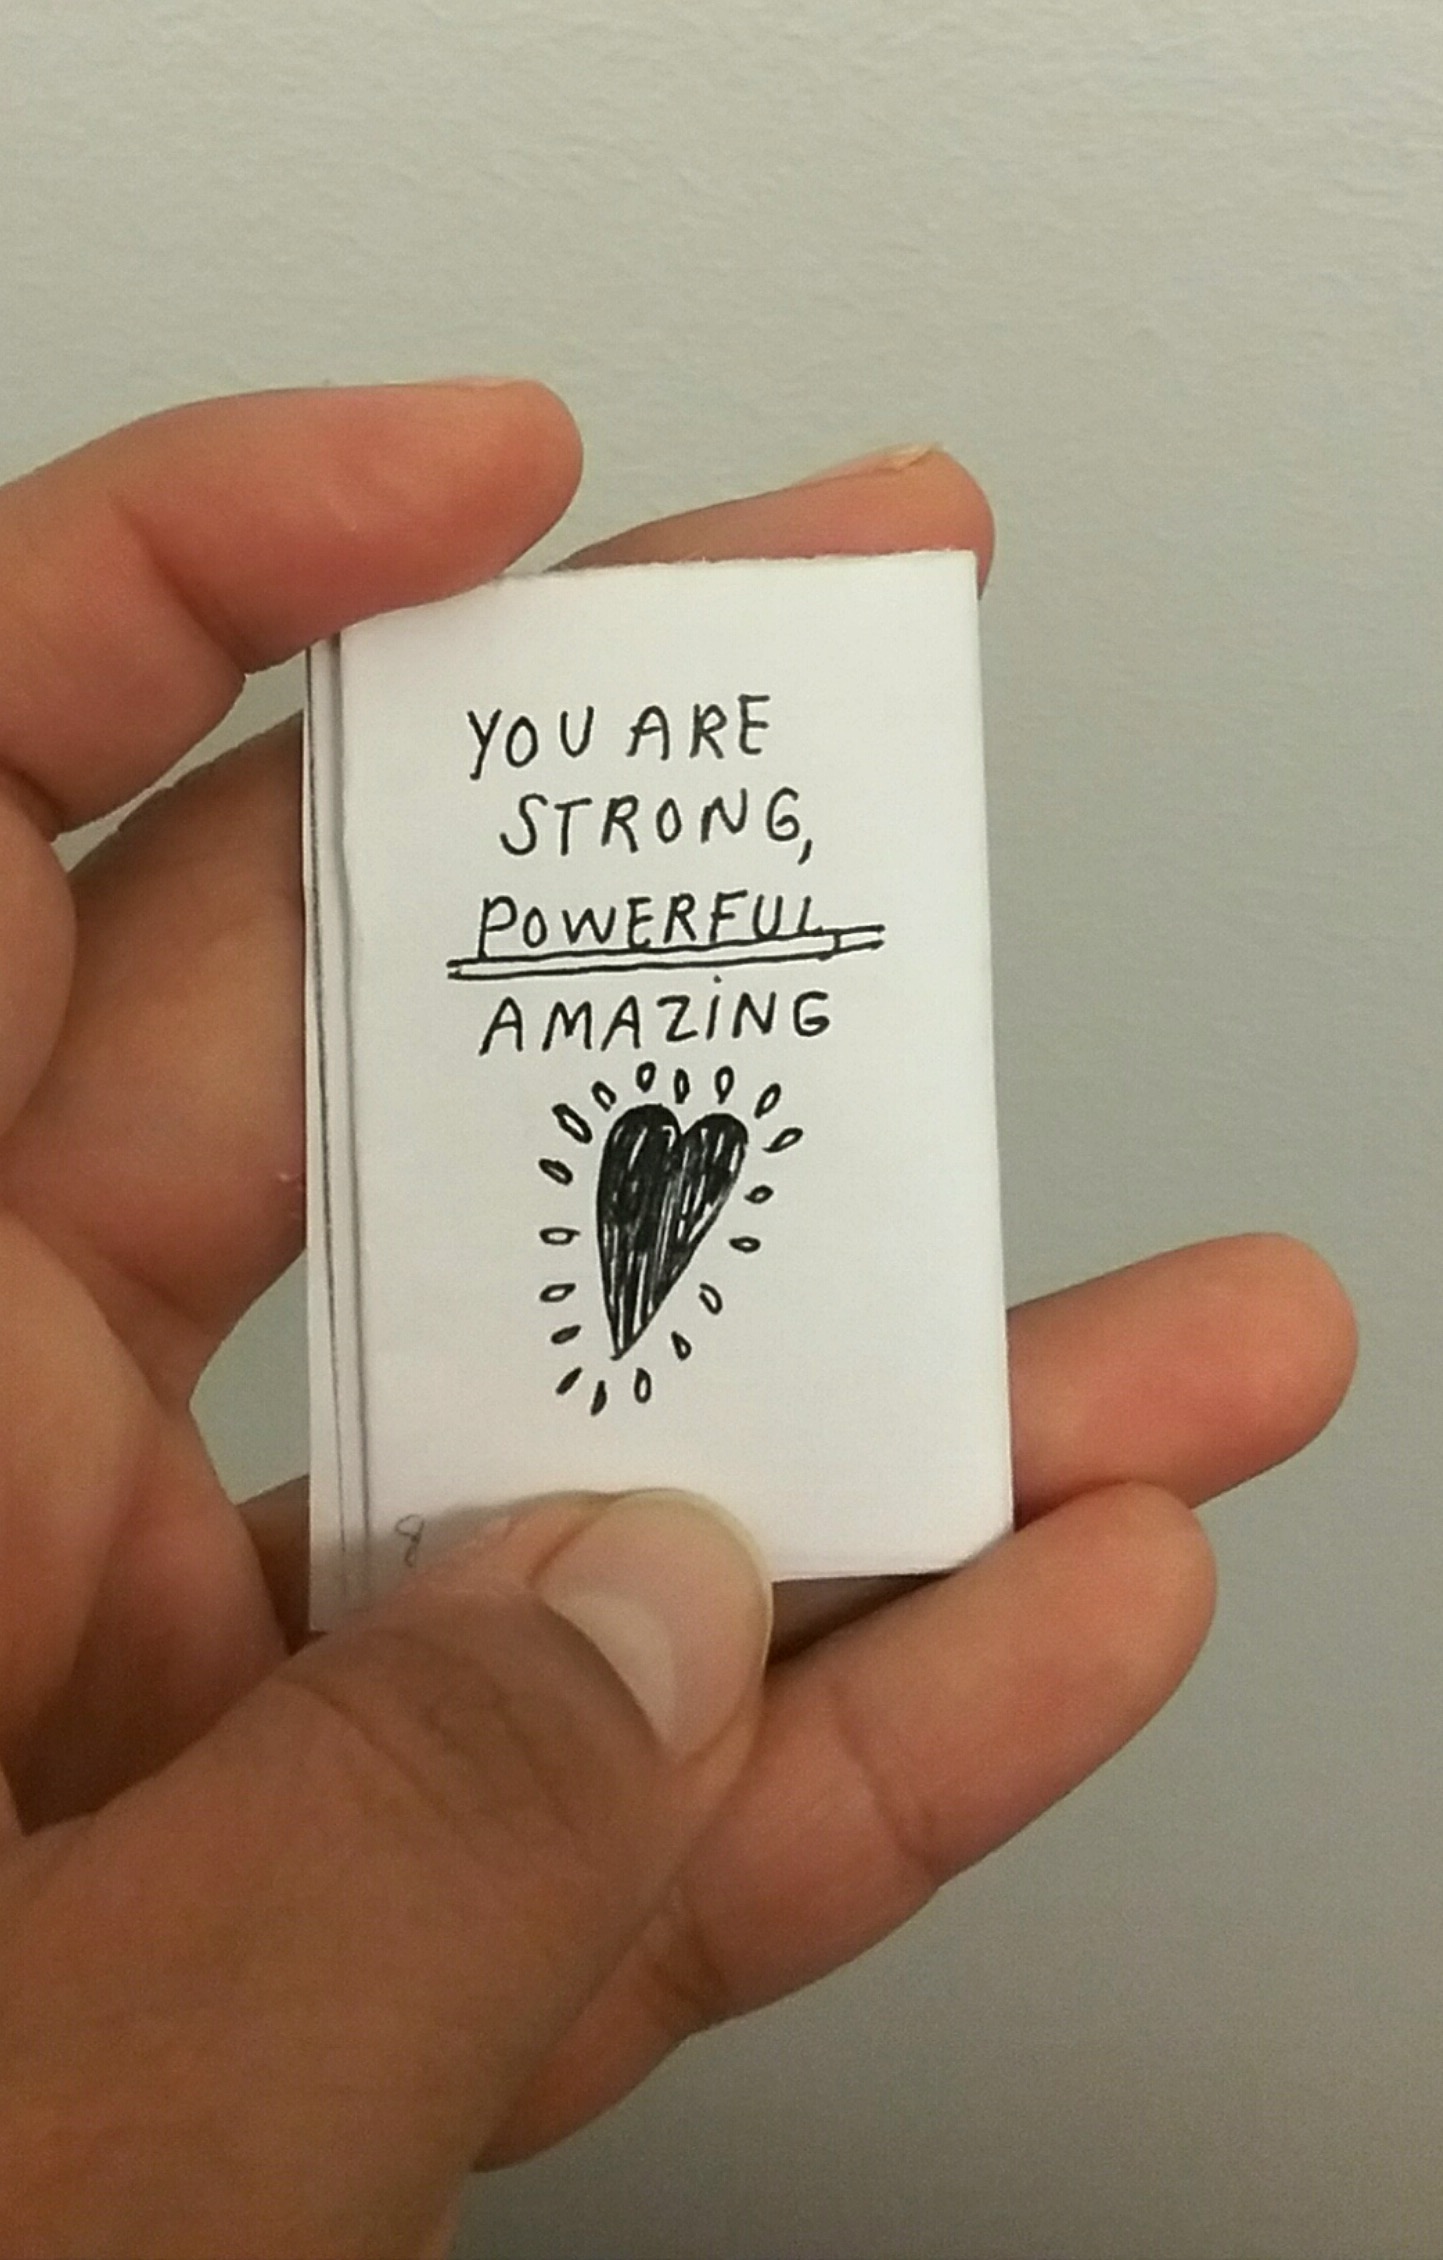 YOU ARE
STRONG,
POWERFUL,
AMAZiNG
8